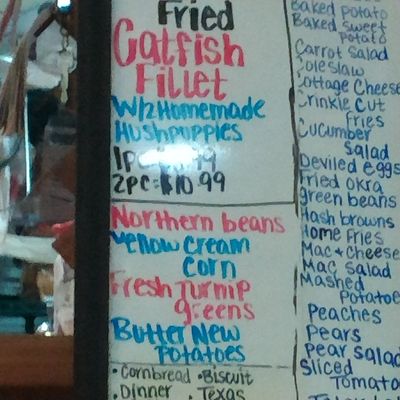 Fried
Catfish
Fillet
W/2 Homemade
Hushpuppies
1pc
2pc- $10.99
Northern beans
Yellow cream
corn
Fresh Turnip
greens
Butter New
Potatoes
• Cornbread • Biscuit
• Dinner • Texas
Baked potato
Baked sweet
potato
Carrot Salad
Coleslaw
Cottage Cheese
Crinkle Cut
Fries
Cucumber
Salad
Deviled eggs
fried okra
green beans
Hash browns
Home Fries
Mac + Cheese
Mac Salad
Mashed
Potatoe
Peaches
Pears
Pear Salad
Sliced
Tomato